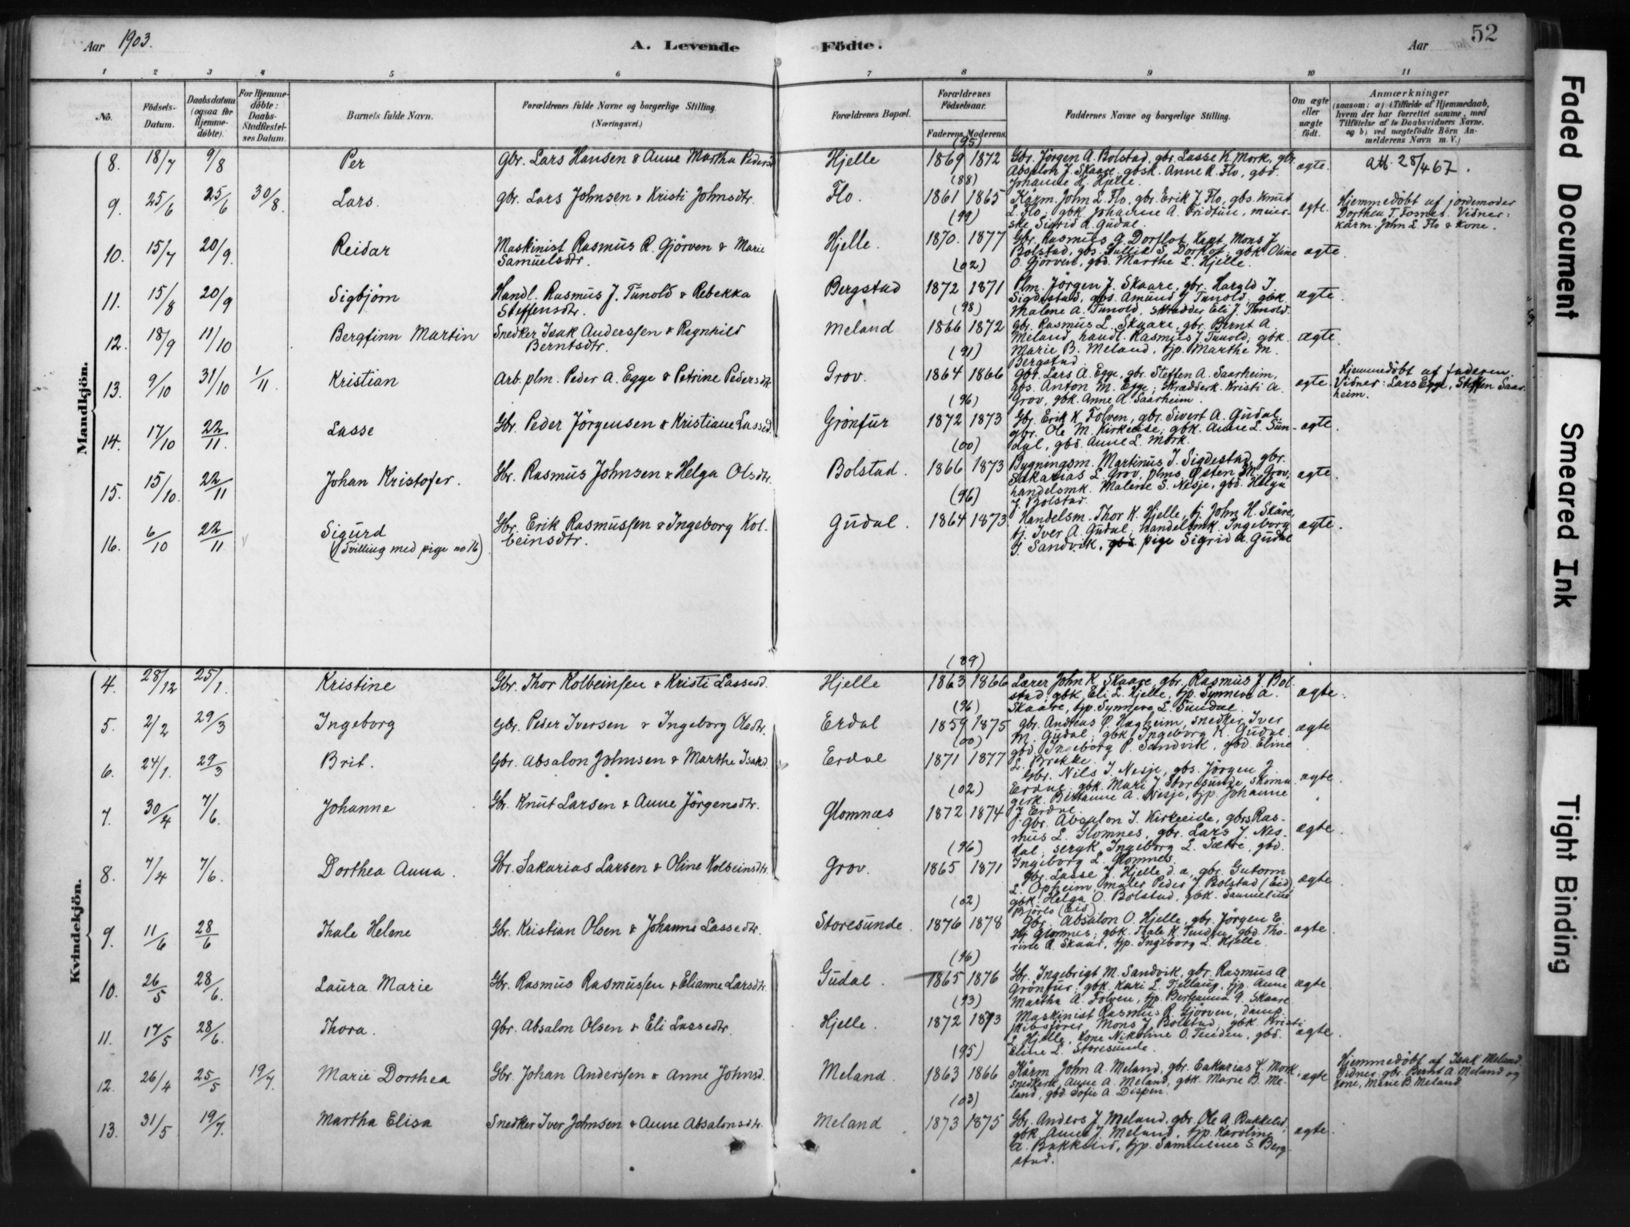 Aar 1903.
A. Levende Fødte.
Aar
52
1 2 3 4 5 6 7 8 9 10 11
No. Fødsels-Datum. Daabsdatum (ogsaa for Hjemmedøbte). For Hjemmedøbte: Daabs-Stadfæstelses Datum. Barnets fulde Navn. Forældrenes fulde Navne og borgerlige Stilling. (Næringsvei.) Forældrenes Bopæl. Forældrenes Fødselsaar. Faderens. Moderens. Faddernes Navne og borgerlige Stilling. Om ægte eller uægte født. Anmærkninger
Mandkjön.
8. 18/7 9/8 Per Gbr. Lars Hansen & Anne Martha Pedersd. Hjelle (95) 1869 1872 Gbr. Jörgen A. Bolstad, gbr. Lasse K. Mork, gbr. ægte. att. 28/4 67.
Absalon J. Skaare, gbsk. Anne R. Flo, gbd.
Johanne L. Hjelle.
9. 25/6 25/6 30/8. Lars. gbr. Lars Johnsen & Kristi Johnsdtr. Flo. (88) 1861 1865 Kårm. John L. Flo, gbr. Erik J. Flo, gbs. Knut ægte. Hjemmedöbt af jordemoder
L. Flo; gbk. Johanne A. meier- Dorthea T. Fosnes. Vidner:
ske Sigrid R. Gudal Karm. John L. Flo & Kone.
10. 15/7 20/9. Reidar Maskinist Rasmus R. Gjörven & Marie Samuelsdtr. Hjelle. (99) 1870. 1877 Gbr. Rasmus G. Dorflot, Mons J. ægte.
Bolstad, gbs. S. Dorflot, gbk. Oline
O. Gjörven, gbd. Marthe L. Hjelle.
11. 15/8 20/9 Sigbjörn Handl. Rasmus J. Tunold & Rebekka Steffensdtr. Bergstad (02) 1872 1871 Plm. Jörgen J. Skaare, gbr. Harald J. ægte.
Sigdestad, gbs. Amund J. Tunold, gbk.
Malene A. Tunold, Eli J. Tunold.
12. 18/9 11/10 Bergfinn Martin Snedker Isak Andersſen & Ragnhild Berntsdtr. Meland (98) 1866 1872 gbr. Rasmus L. Skaare, gbr. Bernt A. ægte.
Meland, handl. Rasmus J. Tunold, gbk.
Marie B. Meland, tjp. Marthe M.
Bergstad
13. 9/10 31/10 1/11. Kristian Arb. plm. Peder A. Egge & Petrine Pedersdtr. Grov. (91) 1864 1866 Gbr. Lars A. Egge, gbr. Steffen A. Saarheim, ægte. Hjemmedöbt af faderen.
gbs. Anton M. Egge; Skrædderk. Kristi A. Vidner: Lars Egge, Steffen Saar-
Grov, gbk. Anne A. Saarheim. heim.
14. 17/10 22/11. Lasse Gbr. Peder Jörgensen & Kristiane Lassed. Grönfur (96) 1872 1873 Gbr. Erik K. Folven, gbr. Sivert A. Gudal, ægte.
gbr. Ole M. Kirkeeide; gbk. Anne L. Sun-
dal, gbd. Anne L. Mork.
15. 15/10. 22/11 Johan Kristofer. Gbr. Rasmus Johnsen & Helga Olsdtr. Bolstad. (00) 1866 1873 Bygningsm. Martinus J. Sigdestad, gbr. ægte.
Sakarias L. Grov, plms. Østen M. Grov,
handelsmk. Malene S. Nesje, gbd. Helga
J. Bolstad
16. 6/10 22/11 Sigurd Gbr. Erik Rasmusſen & Ingeborg Kol- Gudal. (96) 1864 1873 Handelsm. Thor K. Hjelle, tj. John H. Skåre, ægte.
(Tvilling med pige no 16) beinsdtr. tj. Iver A. Gudal, handelsmk. Ingeborg
J. Sandvik, pige Sigrid A. Gudal
Kvindekjön.
4. 28/12 25/1. Kristine Gbr. Thor Kolbeinſen & Kristi Lassesd. Hjelle (89) 1863 1866 Lærer John K. Skaare, gbr. Rasmus J. Bol- ægte.
stad, gbk. Eli L. Hjelle, tjp. Synneva A.
Skaare, tjp. Synneva L. Sundal.
5. 2/2 29/3 Ingeborg Gbr. Peder Iversen & Ingeborg Olsdtr. Erdal (96) 1859 1875 gbr. Andreas P. Hagheim, snedker Iver ægte
M. Gudal; gbk. Ingeborg K. Gudal,
gbd. Ingeborg P. Sandvik, gbd. Eline
L. Brekke.
6. 24/1. 29/3 Brit. Gbr. Absalon Johnsen & Marthe Isaksd. Erdal (00) 1871 1877 Gbr. Nils J. Nesje, gbs. Jörgen J. ægte.
Erdal, gbk. Mari J. Storesunde, Skoma-
gerk. Bertanne A. Nesje, tjp. Johanne
J. Erdal
7. 30/4 7/6. Johanne Gbr. Knut Larsen & Anne Jörgensdtr. Glomnes (02) 1872 1874 Gbr. Absalon J. Kirkeeide, gbrs Ras- ægte.
mus L. Glomnes, gbr. Lars J. Nes-
dal, Ingeborg L. Sætre, gbd.
Ingeborg L. Glomnes.
8. 7/4 7/6. Dorthea Anna. Gbr. Sakarias Larsen & Oline Kolbeinsdtr. Grov. (96) 1865 1871 Gbr. Lasse J. Hjelle d.a., gbr. Gutorm ægte.
L. Opheim, maler Peder J. Bolstad (Eid),
gbk. Helga O. Bolstad, gbk. Samueline
Bjørlo (Eid)
9. 11/6 28/6 Thale Helene Gbr. Kristian Olsen & Johanne Lassedtr. Storesunde. (02) 1876 1878 Gbr. Absalon O. Hjelle, gbr. Jørgen E. ægte.
Glomnes; gbk. Thale K. Tunden, gbd. Tho-
rine A. Skaar, tjp. Ingeborg L. Hjelle.
10. 26/5 28/6. Laura Marie Gbr. Rasmus Rasmusſen & Elianne Larsdtr. Gudal. (96) 1865 1876 Gbr. Ingebrigt M. Sandvik, gbr. Rasmus A. ægte
Grönfur, gbk. Kari L. tjp. Anne
Martha A. Folven, tjp. Bertanna G. Skaare
11. 17/5 28/6. Thora. Gbr. Absalon Olsen & Eli Lassedtr. Hjelle. (93) 1872 1873 Maskinist Rasmus R. Gjörven, damp- ægte.
skibsförer Mons J. Bolstad, gbk. Kristi
L. Hjelle, kone Nikoline O. Tunden, gbd.
Eline L. Storesunde.
12. 26/4 25/5 19/7. Marie Dorthea Gbr. Johan Andersſen & Anne Johnsd. Meland. (95) 1863 1866 Kårm. John A. Meland, gbr. Sakarias K. Mork, ægte Hjemmedöbt af Isak Meland.
snedkerk. Anne A. Meland, gbk. Marie B. Me- Vidner: gbr. Bernt A. Meland og
land, gbd. Sofie A. Dispen. kone, Marie B. Meland
13. 31/5 19/7. Martha Elisa Snedker Iver Johnsen & Anne Absalonsdtr. Meland (03) 1873 1875 Gbr. Anders J. Meland, gbr. Ole A. Bakkelid, ægte.
gbk. Anne J. Meland, tjp. Karoline
A. Bakkelid, tjp. Samueline S. Berg-
stad.
Faded Document
Smeared Ink
Tight Binding